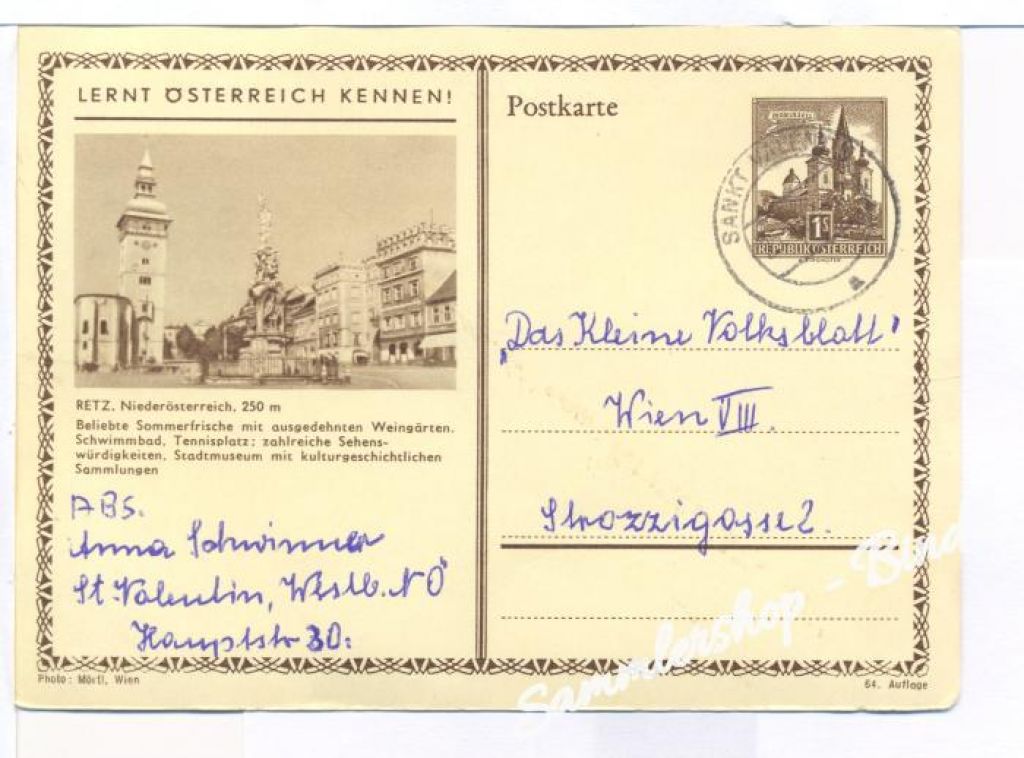 LERNT ÖSTERREICH KENNEN!
RETZ, Niederösterreich, 250 m
Beliebte Sommerfrische mit ausgedehnten Weingärten,
Schwimmbad, Tennisplatz; zahlreiche Sehens-
würdigkeiten, Stadtmuseum mit kulturgeschichtlichen
Sammlungen
ABS.
Anna Schwinner
St. Valentin, Westb. NÖ
Hauptstr 30.
Photo: Mörtl, Wien
Postkarte
MARIAZELL
1S
REPUBLIK ÖSTERREICH
SANKT
a
„Das Kleine Volksblatt"
Wien VIII.
Strozzigasse 2.
64. Auflage
Sammlershop - Bind